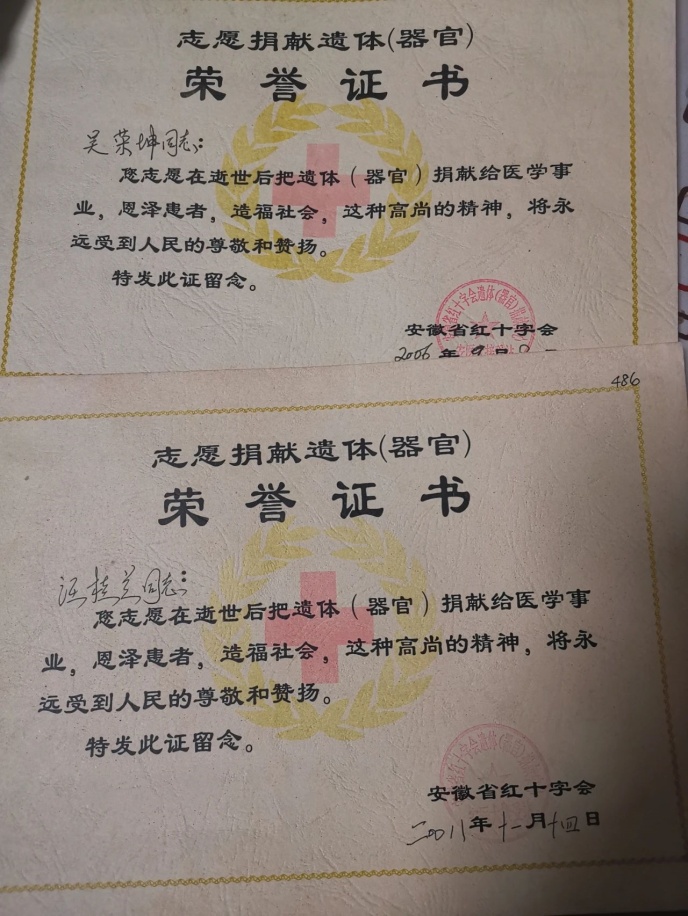 志愿捐献遗体(器官)
荣誉证书
吴荣坤同志:
您志愿在逝世后把遗体(器官)捐献给医学事
业,恩泽患者,造福社会,这种高尚的精神,将永
远受到人民的尊敬和赞扬。
特发此证留念。
安徽省红十字会
2006年9月
486
志愿捐献遗体(器官)
荣誉证书
汪桂兰同志:
您志愿在逝世后把遗体(器官)捐献给医学事
业,恩泽患者,造福社会,这种高尚的精神,将永
远受到人民的尊敬和赞扬。
特发此证留念。
安徽省红十字会
二00八年十一月十四日